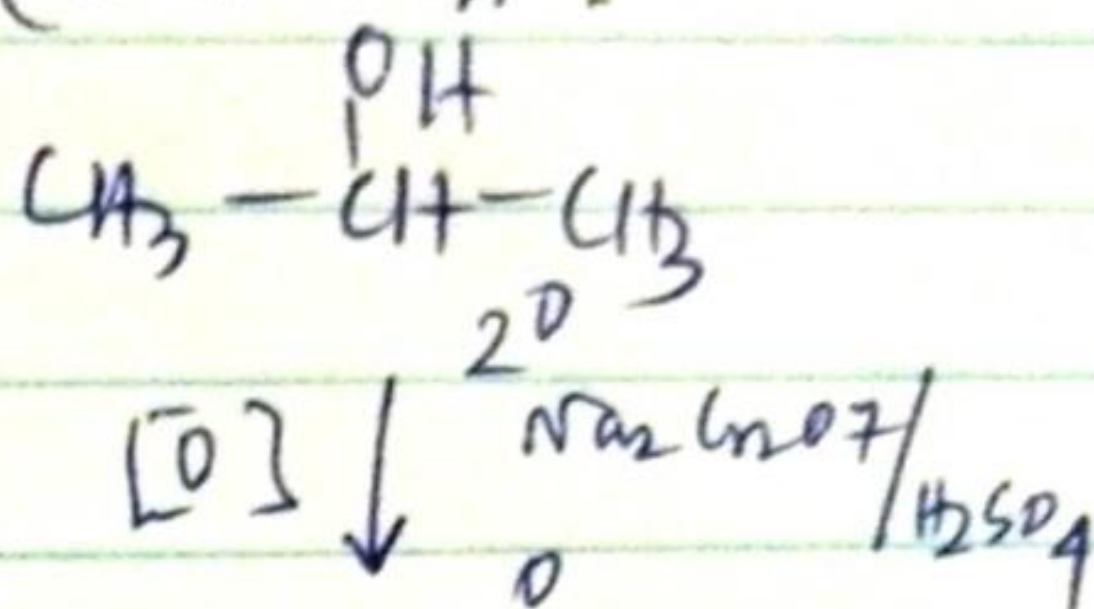 OH
|
CH3 — CH — CH3
2°
[O] ↓ Na2Cr2O7/H2SO4
O